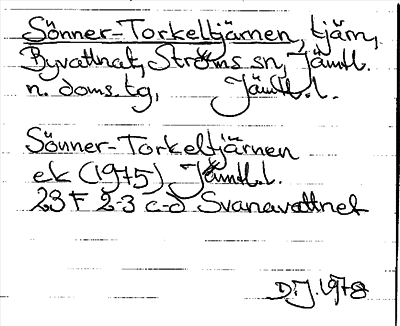 Sönner-Torkeltjärnen, tjärn,
Byvattnet, Ströms sn, Jämtl.
n. doms.tg, Jämtl.l.
Sönner-Torkeltjärnen
ek (1975) Jämtl.l.
23 F 2-3 c-d Svanavattnet
D.J. 1978